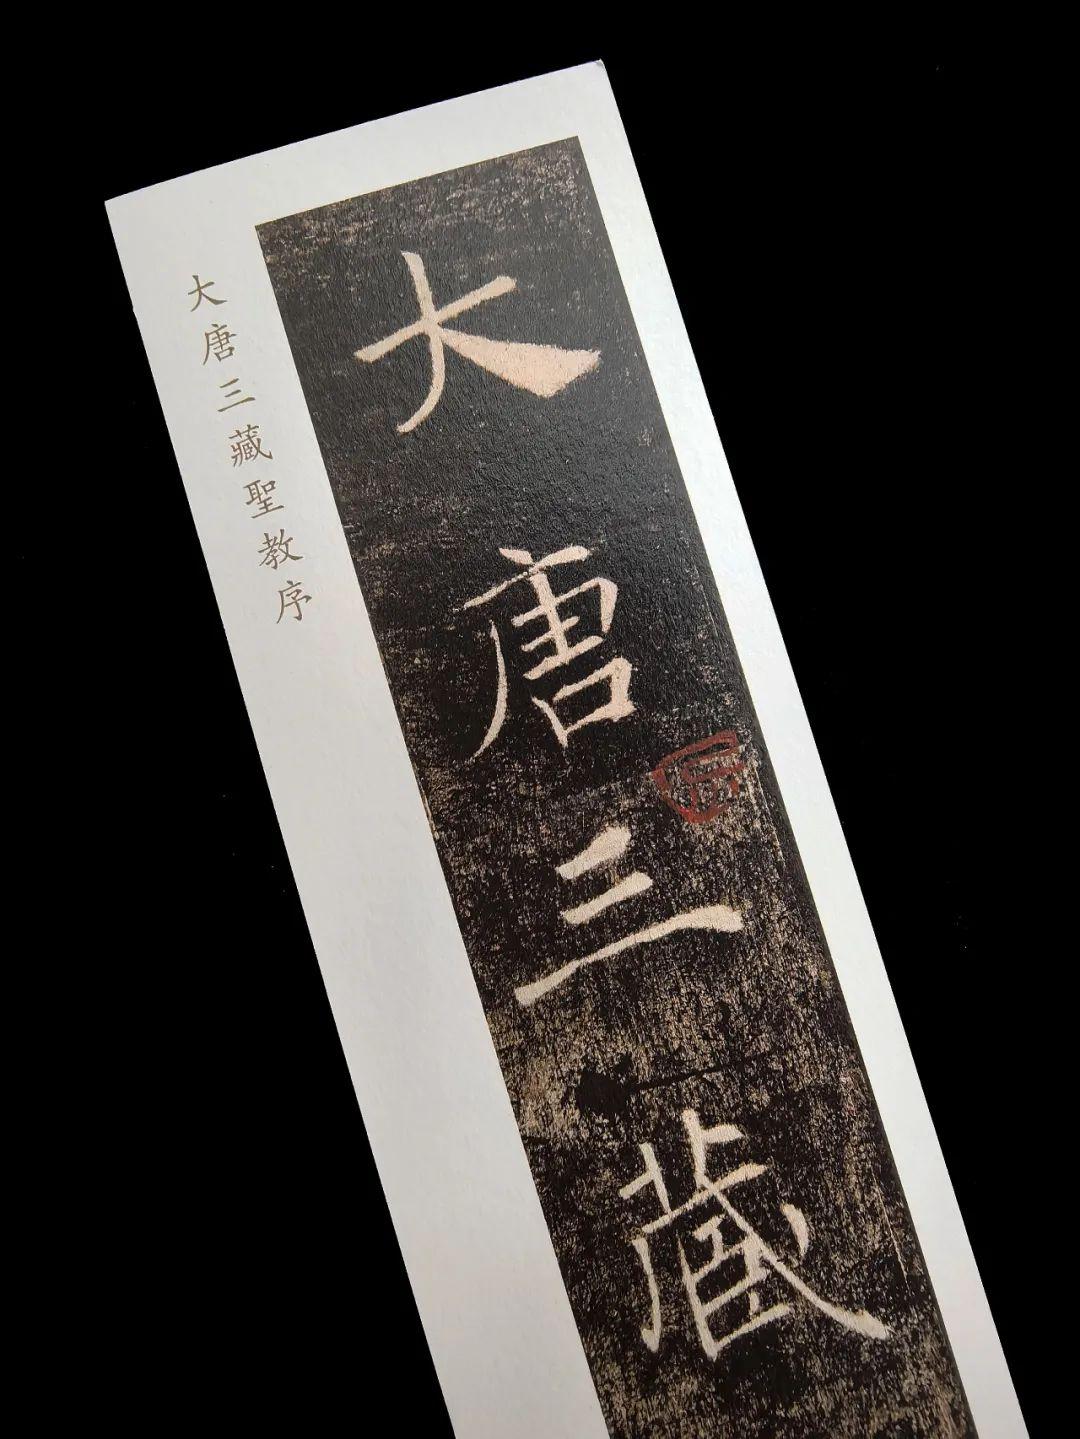 大唐三藏
大唐三藏聖教序